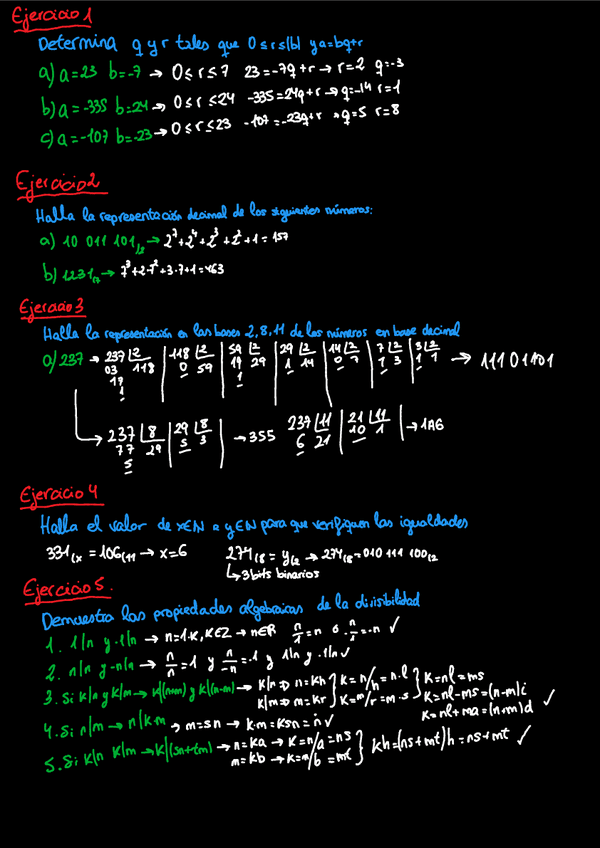 Ejercicio 1
Determina q y r tales que 0≤r≤|b| y a=bq+r
a) a=23 b=-7 → 0≤r≤7 23=-7q+r → r=2 q=-3
b) a=-335 b=24 → 0≤r≤24 -335=24q+r → q=-14 r=1
c) a=-107 b=-23 → 0≤r≤23 -107=-23q+r → q=5 r=8
Ejercicio 2
Halla la representación decimal de los siguientes números:
a) 10 011 101₍₂ → 2⁷+2⁴+2³+2²+1=157
b) 1231₍₇ → 7³+2·7²+3·7+1=463
Ejercicio 3
Halla la representación en las bases 2,8,11 de los números en base decimal
a) 237 → 237 |2 118 |2 59 |2 29 |2 14 |2 7 |2 3 |2 → 11101101
03 118 0 59 19 29 1 14 0 7 1 3 1 1
17 1
1
237 |8 29 |8 → 355 237 |11 21 |11 → 1A6
77 29 5 3 6 21 10 1
5
Ejercicio 4
Halla el valor de x∈N e y∈N para que verifiquen las igualdades
331₍ₓ = 106₍₁₁ → x=6 274₍₈ = y₍₂ → 274₍₈ = 010 111 100₍₂
↳ 3 bits binarios
Ejercicio 5.
Demuestra las propiedades algebraicas de la divisibilidad
1. 1|n y -1|n → n=1·K, K∈Z → n∈R n/1=n ó n/-1=-n ✓
2. n|n y -n|n → n/n=1 y n/-n=-1 y 1|n y -1|n ✓
3. Si k|n y k|m → k|(n+m) y k|(n-m) → k|n ⇒ n=kh } k=n/h=n·l } k=nl=ms
k|m ⇒ m=kr } k=m/r=m·s } k=nl-ms=(n-m)i
k=nl+ma=(n+m)d ✓
4. Si n|m → n|k·m → m=sn → k·m=ksn=n ✓
5. Si k|n k|m → k|(sn+tm) → n=ka → k=n/a=ns } kh=(ns+mt)h=ns+mt ✓
m=kb → k=m/b=mt